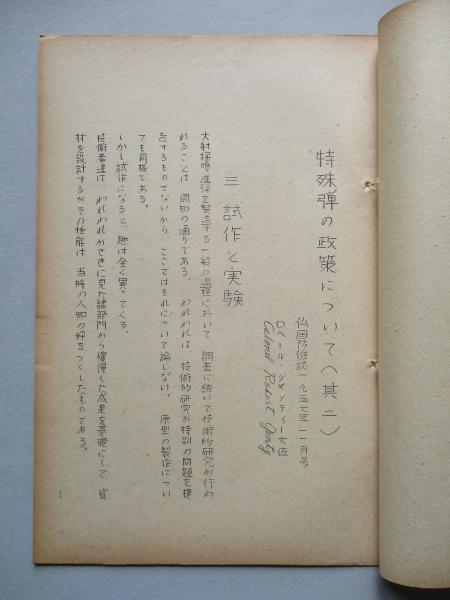 特殊弾の政策について(其二)
仏国防雑誌一九五七年一一月号
大佐
Colonel Robert
三 試作と実験
において 調査に続いて技術的研究が行わ
れることは、周知の通りである。われわれは、技術的研究が特別の問題を提
起するものでないから、ここではそれについて論じない。 原型の製作につい
ても同様である。
しかし試作になると、趣は全く異ってくる。
技術者達は、われわれがさきに見た諸部門から獲得した成果を基礎にして、資
材を設計するがその性能は、当時の人知の粋をつくしたものである。
1